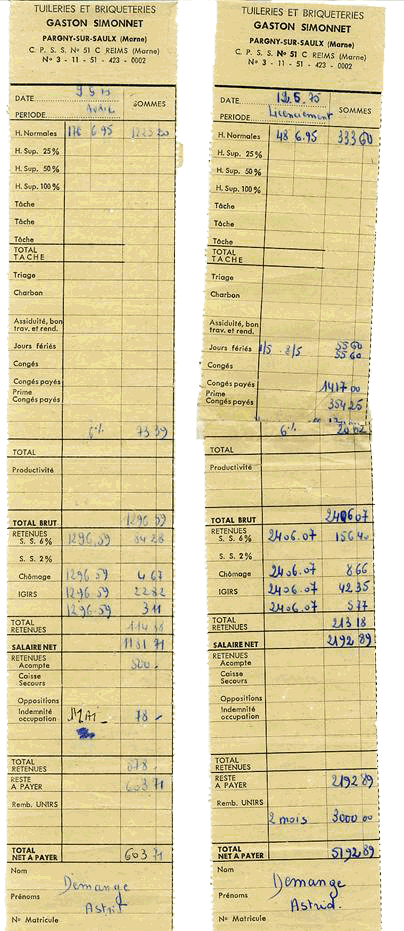 TUILERIES ET BRIQUETERIES
GASTON SIMONNET
PARGNY-SUR-SAULX (Marne)
C. P. S. S. N° 51 C REIMS (Marne)
N° 3 - 11 - 51 - 423 - 0002
DATE
SOMMES
PERIODE. Avril
H. Normales 176 6.95 1223 20
H. Sup. 25 %
H. Sup. 50 %
H. Sup. 100 %
Tâche
Tâche
Tâche
TOTAL
TACHE
Triage
Charbon
Assiduité, bon
trav. et rend.
Jours fériés
Congés
Congés payés
Prime
Congés payés
6% 73 39
TOTAL
Productivité
TOTAL BRUT 1296 59
RETENUES
S. S. 6% 1296,59 84 28
S. S. 2%
Chômage 1296 59 4 67
IGIRS 1296 59 22 82
1296.59 3 11
TOTAL
RETENUES 114 88
SALAIRE NET 1181 71
RETENUES
Acompte 500.
Caisse
Secours
Oppositions
Indemnité
occupation MAI 78
TOTAL
RETENUES 578.
RESTE
A PAYER 603 71
Remb. UNIRS
TOTAL
NET A PAYER 603 71
Nom
Demange
Prénoms
Astrid
N° Matricule
TUILERIES ET BRIQUETERIES
GASTON SIMONNET
PARGNY-SUR-SAULX (Marne)
C. P. S. S. N° 51 C REIMS (Marne)
N° 3 - 11 - 51 - 423 - 0002
DATE 12.5.75
SOMMES
PERIODE. Licenciement
H. Normales 48 6.95 333 60
H. Sup. 25 %
H. Sup. 50 %
H. Sup. 100 %
Tâche
Tâche
Tâche
TOTAL
TACHE
Triage
Charbon
Assiduité, bon
trav. et rend.
Jours fériés 1/5 8/5 55 60
55 60
Congés
Congés payés 1417 00
Prime
Congés payés 354 25
6%
TOTAL
Productivité
TOTAL BRUT 2406 07
RETENUES
S. S. 6% 2406.07 156 40
S. S. 2%
Chômage 2406.07 8 66
IGIRS 2406.07 42 35
2406.07 5 77
TOTAL
RETENUES 213 18
SALAIRE NET 2192 89
RETENUES
Acompte
Caisse
Secours
Oppositions
Indemnité
occupation
TOTAL
RETENUES
RESTE
A PAYER 2192 89
Remb. UNIRS
2 mois 3000 00
TOTAL
NET A PAYER 5192 89
Nom
Demange
Prénoms
Astrid.
N° Matricule